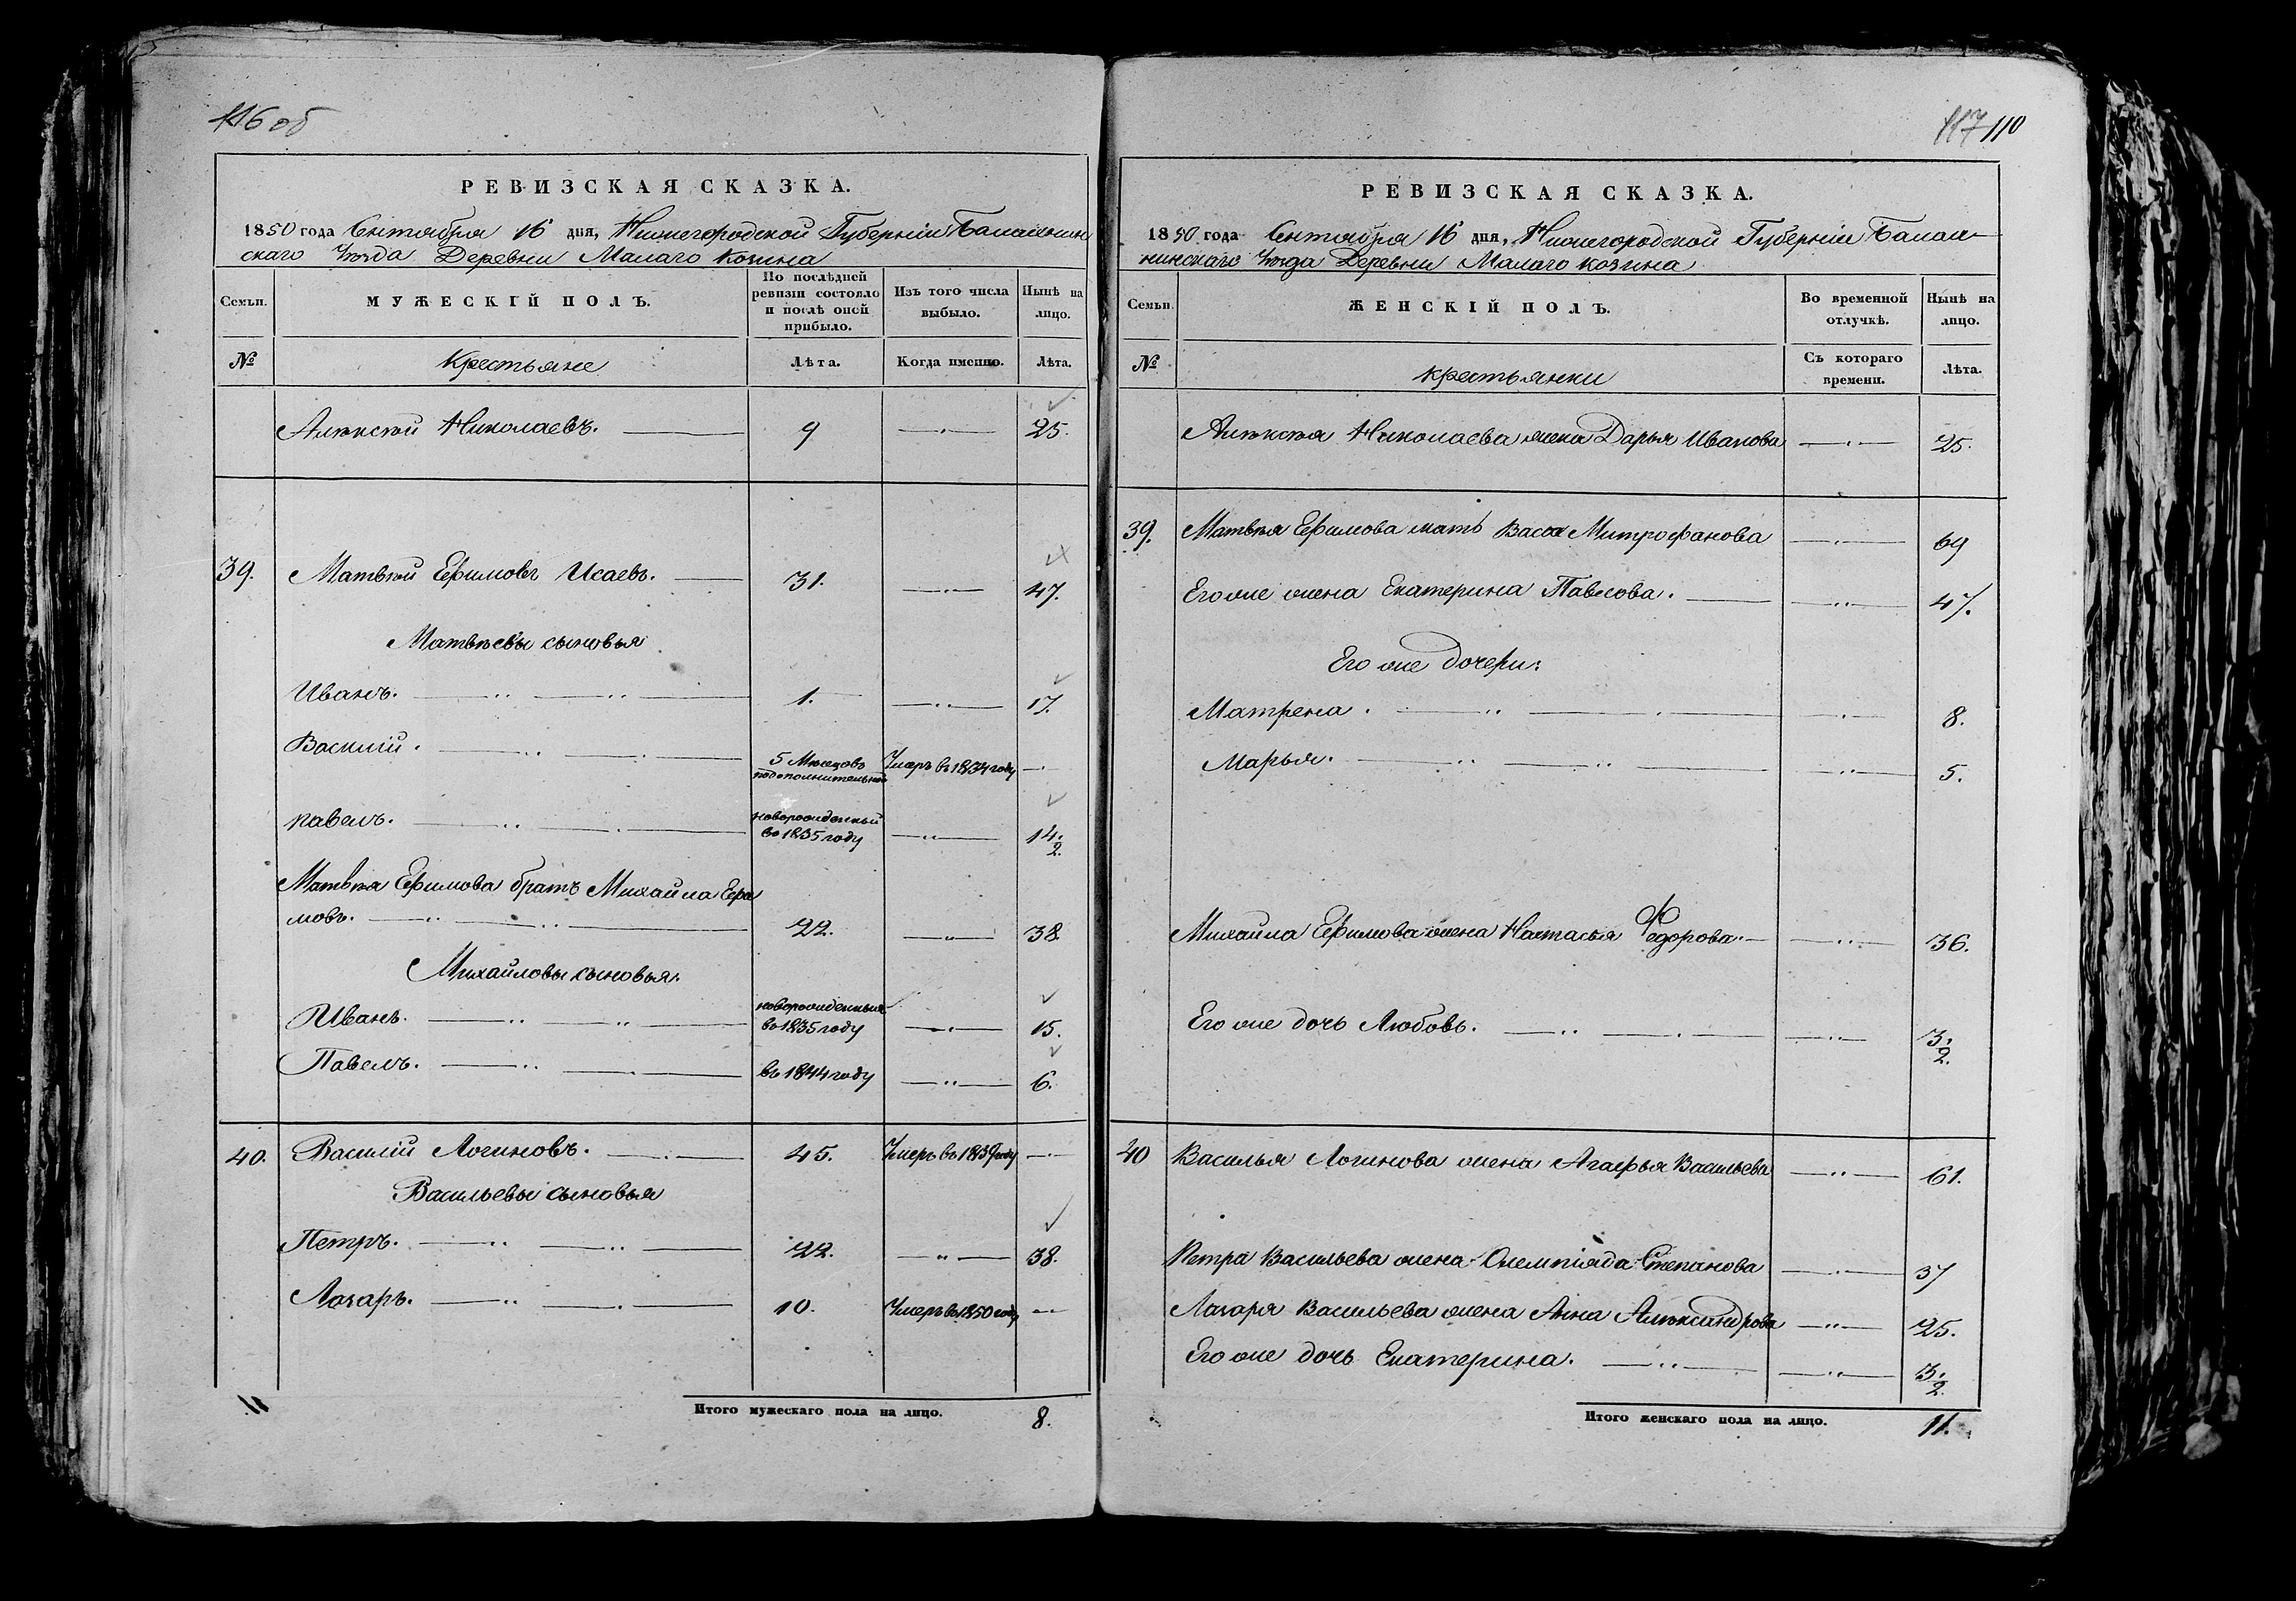 116 об
РЕВИЗСКАЯ СКАЗКА.
1850 года Сентября 16 дня, Нижегородской Губерніи Балахнин
скаго Уѣзда Деревни Малаго Козина
Семьи.
МУЖЕСКІЙ ПОЛЪ.
По послѣдней ревизіи состояло и послѣ оной прибыло.
Изъ того числа выбыло.
Нынѣ на лицо.
№
Крестьяне
Лѣта.
Когда именно.
Лѣта.
Алѣксѣй Николаевъ. 9 25.
39. Матвѣй Ефимовъ Исаевъ. 31. 47.
Матвѣевы сыновья
Иванъ. 1. 17.
Василій. 5 Мѣсецовъ подополнительной Умеръ въ 1834 году
Павелъ. новорожденный во 1835 году 14 1/2.
Матвѣя Ефимова братъ Михайла Ефи
мовъ. 22. 38.
Михайловы сыновья.
Иванъ. новорожденныя во 1835 году 15.
Павелъ. въ 1844 году 6.
40. Василій Логиновъ. 45. Умеръ въ 1839 году
Васильевы сыновья
Петръ. 22. 38.
Лазарь. 10. Умеръ въ 1850 году
Итого мужескаго пола на лицо. 8.
117 110
РЕВИЗСКАЯ СКАЗКА.
1850 года Сентября 16 дня, Нижегородской Губерніи Балах
нинскаго Уѣзда Деревни Малаго Козина
Семьи.
ЖЕНСКІЙ ПОЛЪ.
Во временной отлучкѣ.
Нынѣ на лицо.
№
Крестьянки
Съ котораго времени.
Лѣта.
Алѣксѣя Николаева жена Дарья Иванова 25.
39. Матвѣя Ефимова мать Васса Митрофанова 69
Его же жена Екатерина Павлова. 47.
Его же дочери:
Матрена. 8.
Марья. 5.
Михайла Ефимова жена Настасья Федорова. 36.
Его же дочь Любовь. 3 1/2.
40 Василья Логинова жена Агафья Васильева 61.
Петра Васильева жена Олемпіяда Степанова 37
Лазаря Васильева жена Анна Алѣксандрова 25.
Его же дочь Екатерина. 3 1/2.
Итого женскаго пола на лицо. 11.